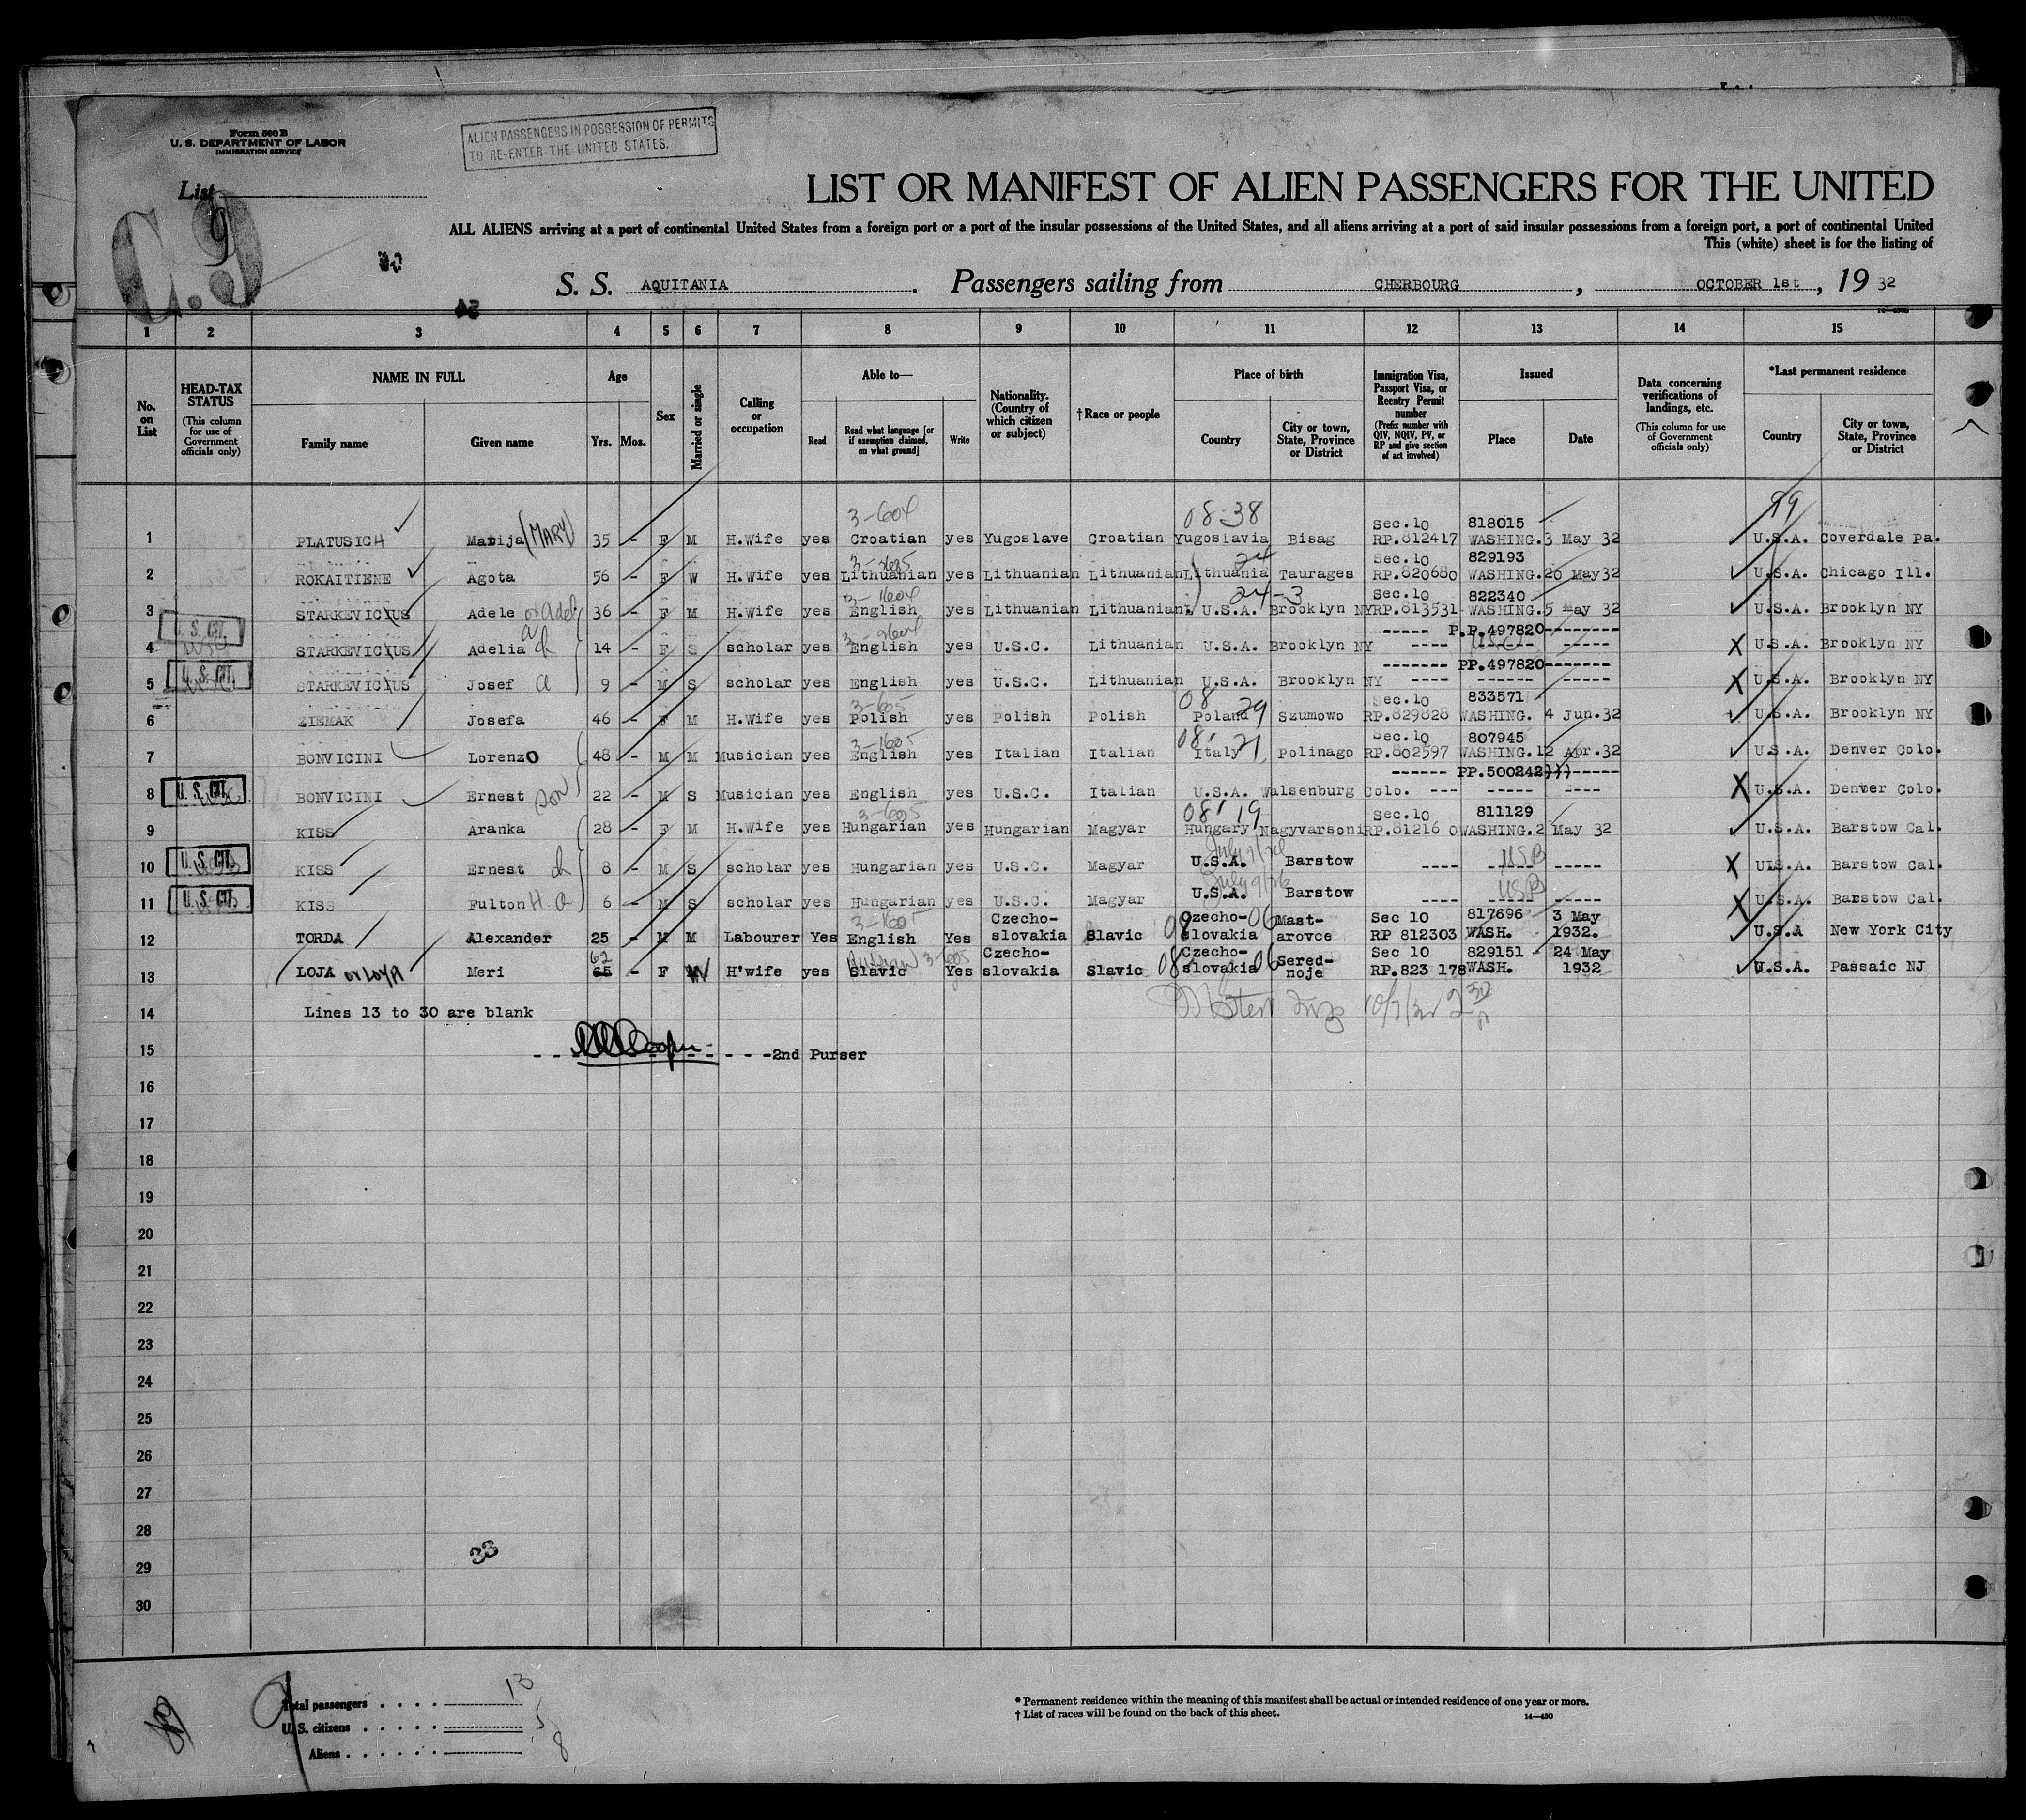 Form 500 B
U. S. DEPARTMENT OF LABOR
IMMIGRATION SERVICE
ALIEN PASSENGERS IN POSSESSION OF PERMITS
TO RE-ENTER THE UNITED STATES.
List
9
C.9
LIST OR MANIFEST OF ALIEN PASSENGERS FOR THE UNITED
ALL ALIENS arriving at a port of continental United States from a foreign port or a port of the insular possessions of the United States, and all aliens arriving at a port of said insular possessions from a foreign port, a port of continental United
This (white) sheet is for the listing of
S. S. AQUITANIA. Passengers sailing from CHERBOURG, OCTOBER 1st, 19 32
1 2 3 4 5 6 7 8 9 10 11 12 13 14 15
No. on List
HEAD-TAX STATUS (This column for use of Government officials only)
NAME IN FULL Family name Given name
Age Yrs. Mos.
Sex
Married or single
Calling or occupation
Able to— Read Read what language [or if exemption claimed, on what ground] Write
Nationality. (Country of which citizen or subject)
†Race or people
Place of birth Country City or town, State, Province or District
Immigration Visa, Passport Visa, or Reentry Permit number (Prefix number with QIV, NQIV, PV, or RP and give section of act involved)
Issued Place Date
Data concerning verifications of landings, etc. (This column for use of Government officials only)
*Last permanent residence Country City or town, State, Province or District
3-604 08-38 Sec.10 818015 99
1 PLATUSICH Marija (MARY) 35 - F M H.Wife yes Croatian yes Yugoslave Croatian Yugoslavia Bisag RP.812417 WASHING. 3 May 32 U.S.A. Coverdale Pa.
24 Sec.10 829193
2 ROKAITIENE Agota 56 - F W H.Wife yes Lithuanian yes Lithuanian Lithuanian Lithuania Taurages RP.820680 WASHING. 20 May32 U.S.A. Chicago Ill.
24-3 Sec.10 822340
3 STARKEVICIUS Adele 36 - F M H.Wife yes English yes Lithuanian Lithuanian U.S.A. Brooklyn NY RP.813531 WASHING. 5 may 32 U.S.A. Brooklyn NY
U. S. CIT. ------ P.P.497820--------
4 STARKEVICIUS Adelia 14 - F S scholar yes English yes U.S.C. Lithuanian U.S.A. Brooklyn NY ---- ----- U.S.A. Brooklyn NY
U. S. CIT. ------- PP.497820-------
5 STARKEVICIUS Josef 9 - M S scholar yes English yes U.S.C. Lithuanian U.S.A. Brooklyn NY ---- ------ ----- U.S.A. Brooklyn NY
3-605 08 29 Sec.10 833571
6 ZIEMAK Josefa 46 - F M H.Wife yes Polish yes Polish Polish Poland Szumowo RP.829828 WASHING. 4 Jun.32 U.S.A. Brooklyn NY
3-1605 08 21 Sec.10 807945
7 BONVICINI Lorenzo 48 - M M Musician yes English yes Italian Italian Italy Polinago RP.802597 WASHING. 12 Apr.32 U.S.A. Denver Colo.
U. S. CIT. ------ PP.500242)))-----
8 BONVICINI Ernest son 22 - M S Musician yes English yes U.S.C. Italian U.S.A. Walsenburg Colo. --- ----- ---- U.S.A. Denver Colo.
3-605 08 19 Sec.10 811129
9 KISS Aranka 28 - F M H.Wife yes Hungarian yes Hungarian Magyar Hungary Nagyvarsoni RP.81216 0 WASHING. 2 May 32 U.S.A. Barstow Cal.
U. S. CIT. USB
10 KISS Ernest 8 - M S scholar yes Hungarian yes U.S.C. Magyar U.S.A. Barstow ---- ----- ----- UIS.A. Barstow Cal.
U. S. CIT. July 9/26 USB
11 KISS Fulton H 6 - M S scholar yes Hungarian yes U.S.C. Magyar U.S.A. Barstow ---- ----- ----- U.S.A. Barstow Cal.
3-1605 Czecho- Czecho- 06 Mast- Sec 10 817696 3 May
12 TORDA Alexander 25 - M M Labourer Yes English Yes slovakia Slavic 08 slovakia arovce RP 812303 WASH. 1932. U.S.A New York City
62 3-605 Czecho- Czecho- 06 Sered- Sec 10 829151 - 24 May
13 LOJA or LOYA Meri 65 - F W H'wife yes Slavic Yes slovakia Slavic 08 slovakia noje RP.823 178 WASH. 1932 U.S.A. Passaic NJ
14 Lines 13 to 30 are blank
15 - - - - - - -2nd Purser
16
17
18
19
20
21
22
23
24
25
26
27
28
29
33
30
Total passengers . . . . 13
U. S. citizens . . . . . 5
Aliens . . . . . . 8
* Permanent residence within the meaning of this manifest shall be actual or intended residence of one year or more.
† List of races will be found on the back of this sheet.
14—430